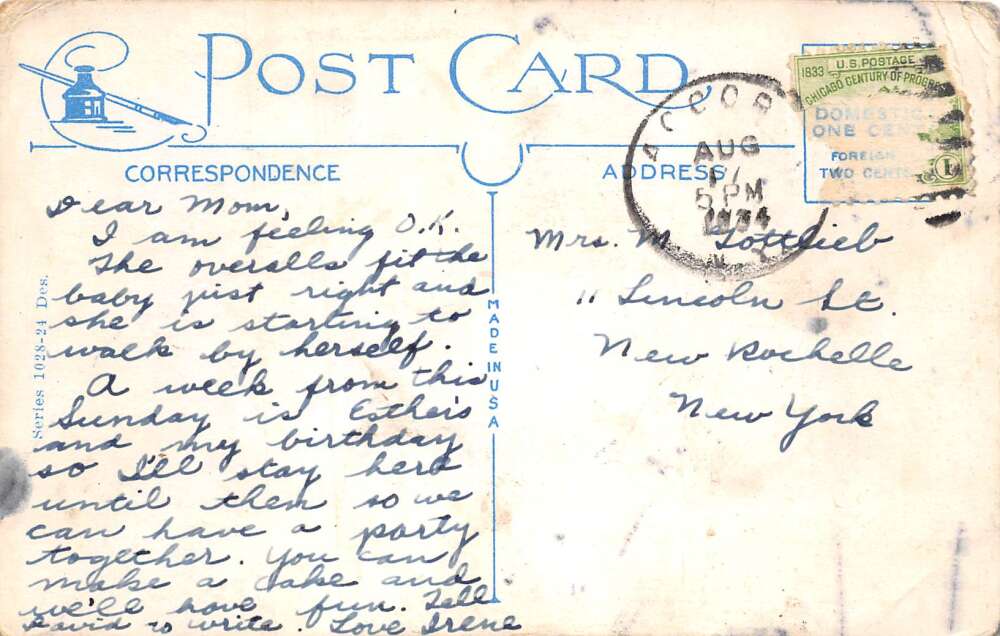 POST CARD
CORRESPONDENCE
ADDRESS
Dear Mom,
I am feeling O.K.
The overalls fit the
baby just right and
she is starting to
walk by herself.
A week from this
Sunday is Esther's
and my birthday
so I'll stay here
until then so we
can have a party
together. You can
make a cake and
we'll have fun. Tell
David to write. Love Irene
Series 1028-24 Des.
MADE IN USA
ACCOR
AUG
17
5 PM
1934
N.Y.
1833
U.S. POSTAGE
CHICAGO CENTURY OF PROGRE
DOMESTIC
ONE CENT
FOREIGN
TWO CENTS
1
Mrs. M. Gottlieb
11 Lincoln St.
New Rochelle
New York